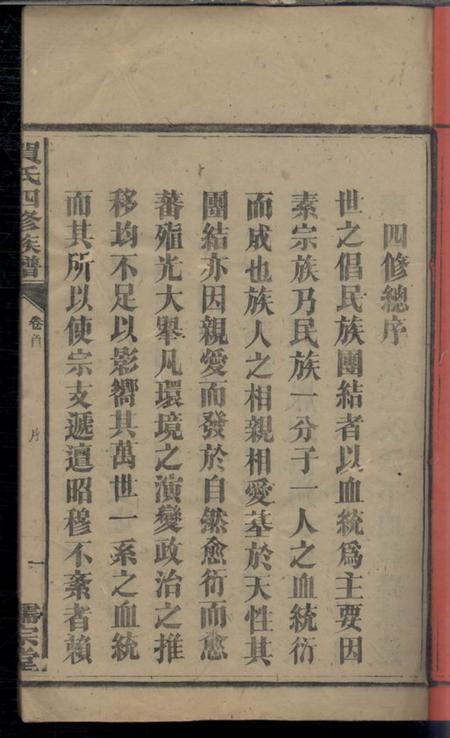 四修總序
世之倡民族團結者以血統爲主要因
素宗族乃民族一分子一人之血統衍
而成也族人之相親相愛基於天性其
團結亦因親愛而發於自然愈衍而愈
蕃殖光大舉凡環境之演變政治之推
移均不足以影嚮其萬世一系之血統
而其所以使宗支遞嬗昭穆不紊者賴
賀氏四修族譜
卷首
序
一
儒宗堂